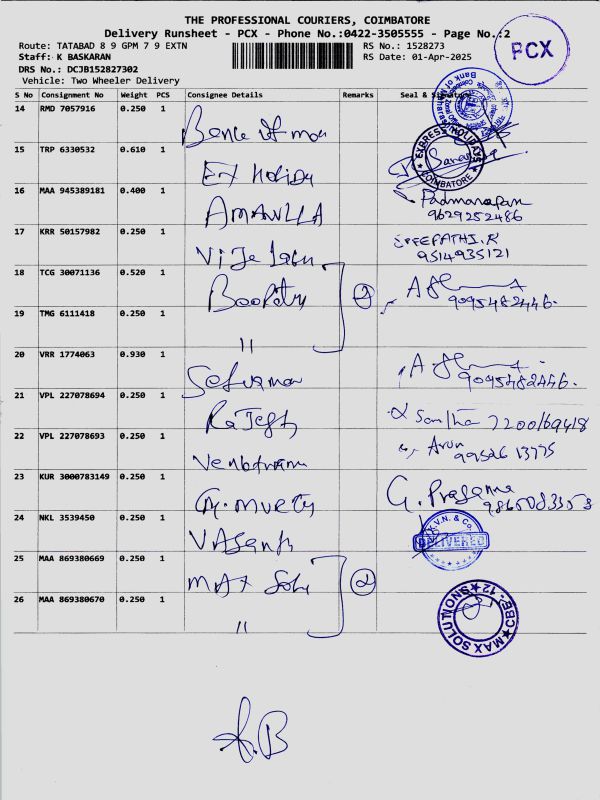 THE PROFESSIONAL COURIERS, COIMBATORE
Delivery Runsheet - PCX - Phone No.:0422-3505555 - Page No.:2
Route: TATABAD 8 9 GPM 7 9 EXTN
RS No.: 1528273
PCX
Staff: K BASKARAN
RS Date: 01-Apr-2025
DRS No.: DCJB152827302
Vehicle: Two Wheeler Delivery
S No Consignment No Weight PCS Consignee Details Remarks Seal & Signature
14 RMD 7057916 0.250 1
15 TRP 6330532 0.610 1 EXPRESS HOLIDAYS COIMBATORE
16 MAA 945389181 0.400 1 AMANULLA Padmanapan
9629252486
17 KRR 50157982 0.250 1
9514935121
18 TCG 30071136 0.520 1 2
9095482446.
19 TMG 6111418 0.250 1 "
20 VRR 1774063 0.930 1
9095482446.
21 VPL 227078694 0.250 1 RaJesh Santha 7200169418
22 VPL 227078693 0.250 1 Arun
99526 13775
23 KUR 3000783149 0.250 1 G. Prasanna
24 NKL 3539450 0.250 1 V.N. & Co.
DELIVERED
25 MAA 869380669 0.250 1 MAX Solu 2
26 MAA 869380670 0.250 1 " MAX SOLUTIONS CBE-12
K.B